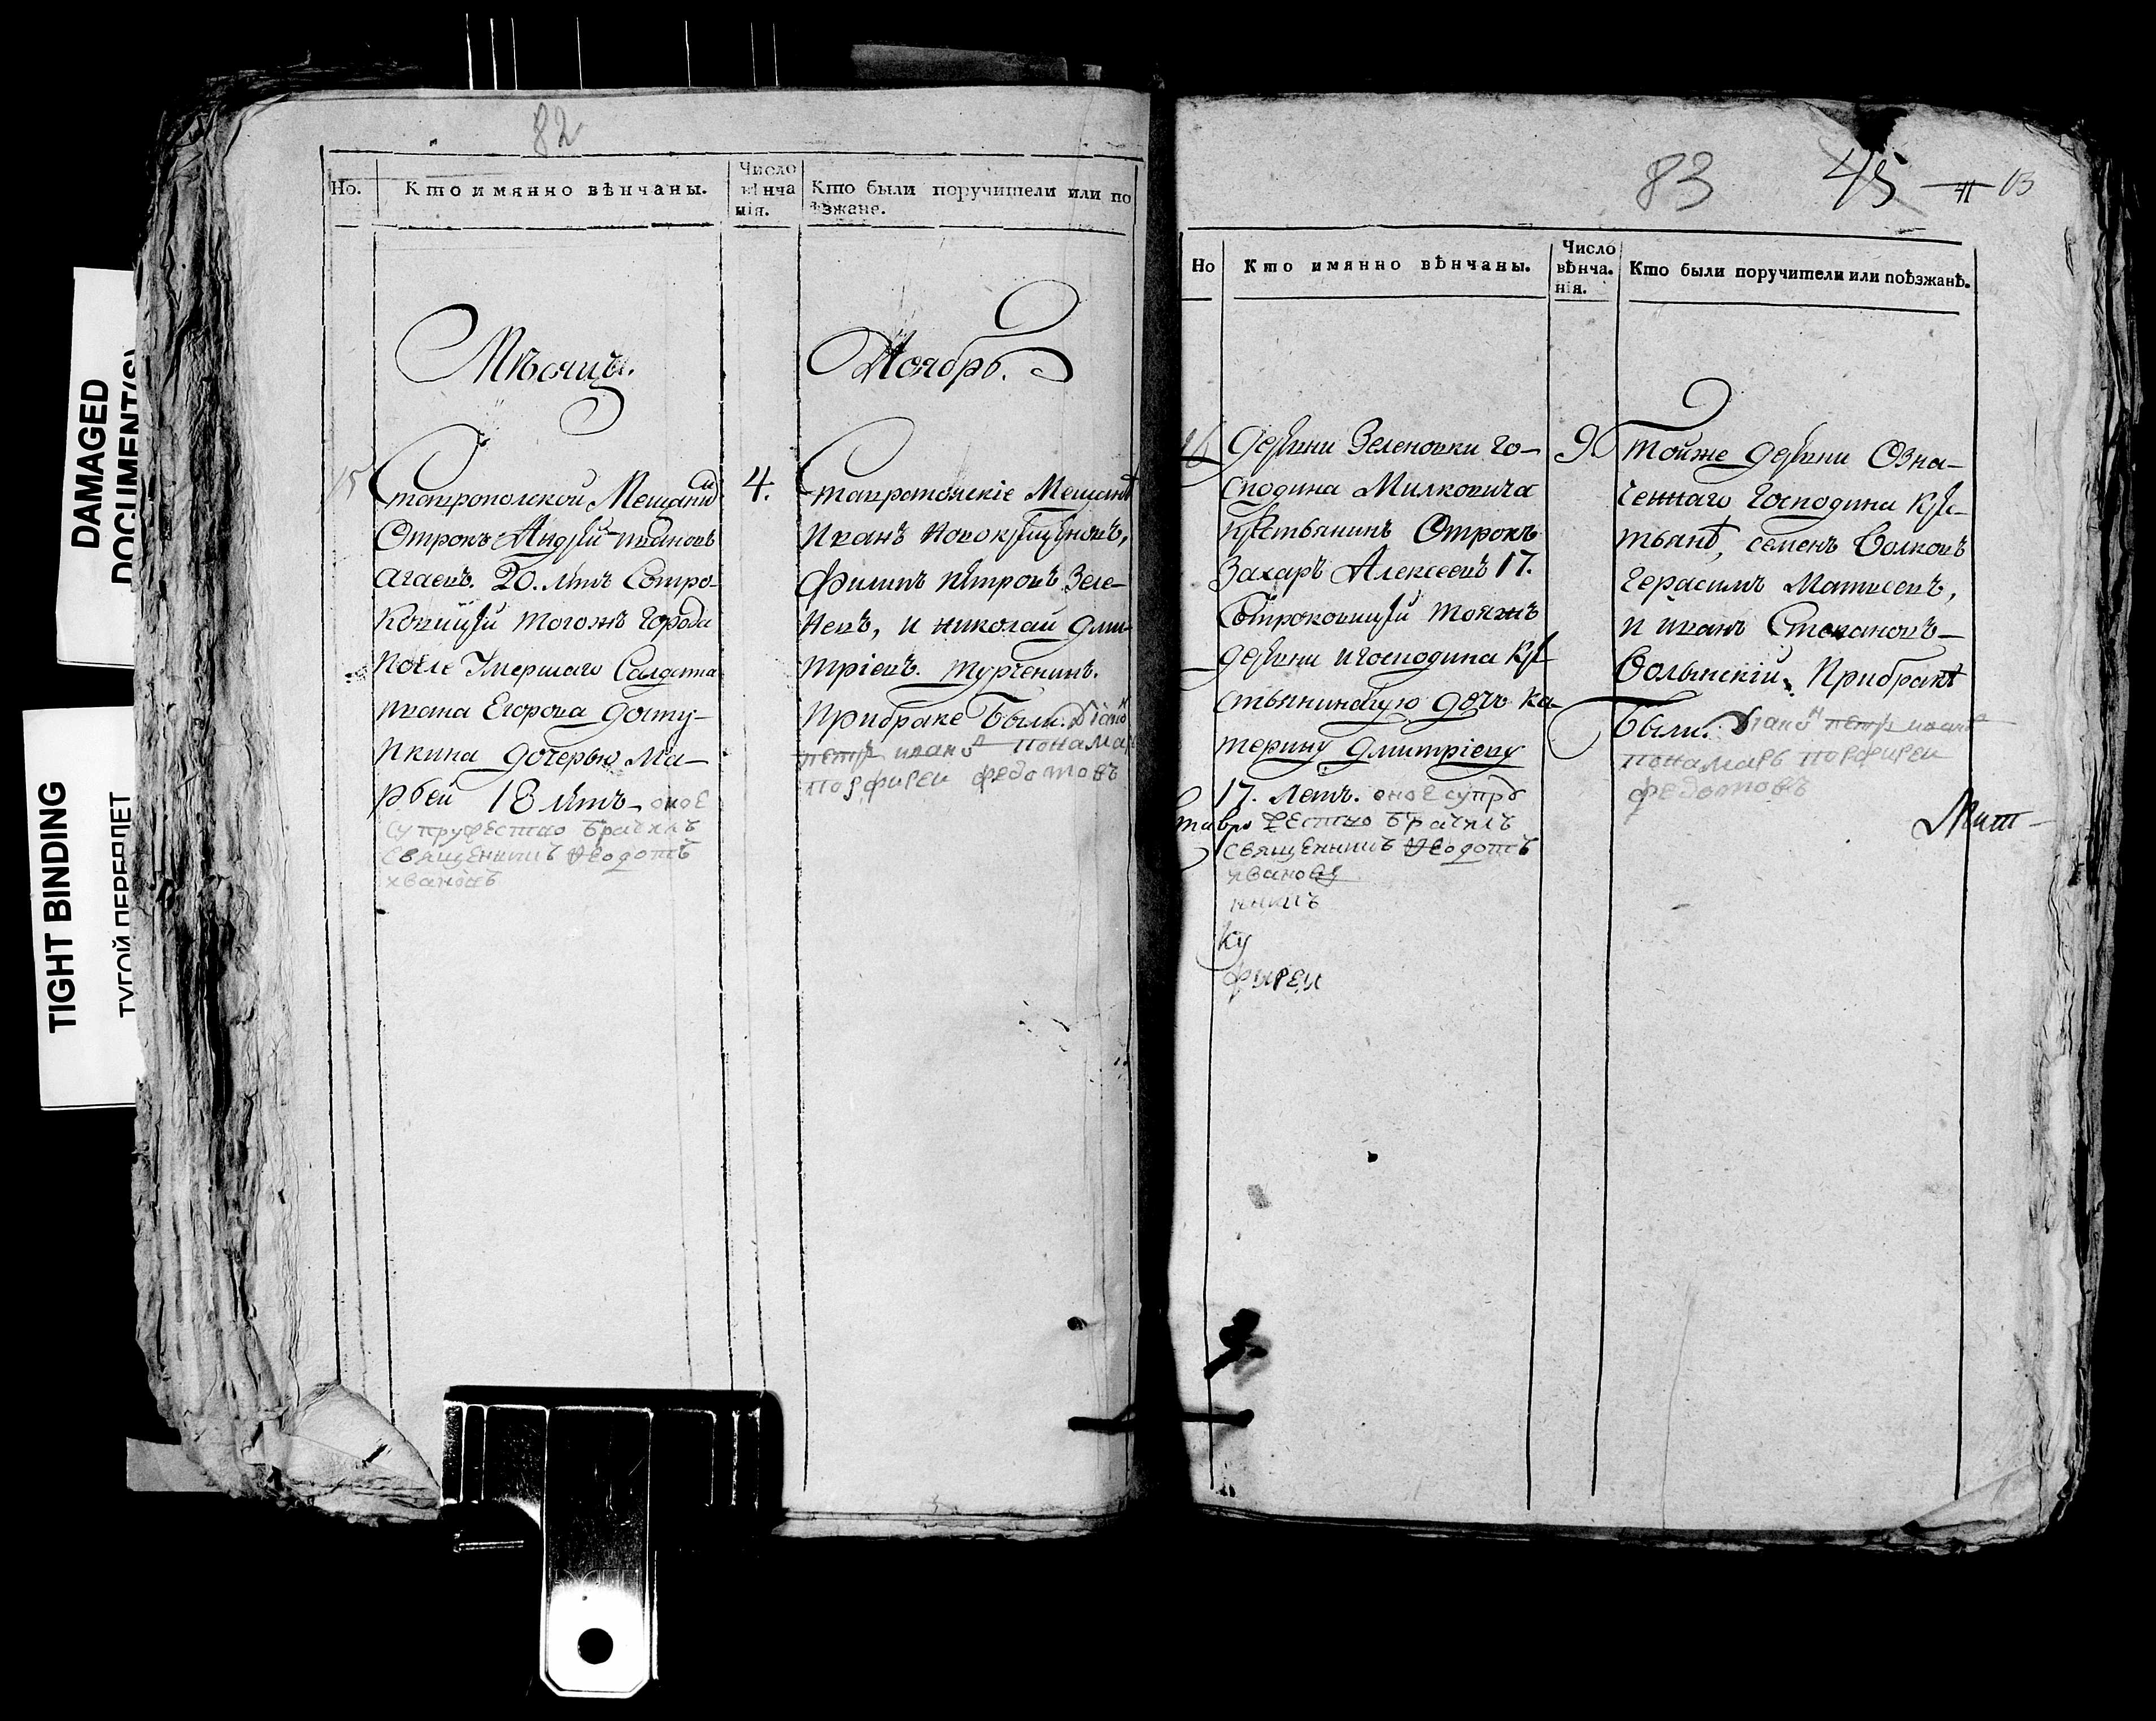 82
Но.
Кто имянно вѣнчаны.
Число
вѣнча
нія.
Кто были поручители или по
ѣзжане.
Мѣсяцъ.
Ноябрь.
15
Ставропольской Мещани
Отрокъ Андрей Ивановъ
20. летъ Сотро-
ковицей тогожъ города
после Умершаго Салдата
Ивана Егорова
дочерью Ма-
рѳой 18 летъ оное
супружество брачилъ
священникъ Ѳеодотъ
ивановъ
4.
Ставропольскіе Мещанѣ
Иванъ Новокрещеновъ,
Филипъ Петровъ Зеле-
невъ, и николай Дми-
тріевъ. Турченинъ.
При браке были. Діако
петръ ивано понама
порфирей федотовъ
DAMAGED
DOCUMENT(S)
TIGHT BINDING
ТУГОЙ ПЕРЕПЛЕТ
83
45
Но
Кто имянно вѣнчаны.
Число
вѣнча.
нія.
Кто были поручители или поѣзжанѣ.
16
Деревни Зеленовки го-
сподина Милковича
крестьянинъ Отрокъ
Захаръ Алексеевъ 17.
Сотроковицей тояжъ
деревни игосподина кре-
стьянина дочь Ка-
терину Дмитріеву
17. Летъ. оное супру
жество брачилъ
священникъ Ѳеодотъ
иванов
никъ
ку
фирей
9.
Тойже деревни Озна-
ченнаго Господина кре-
тьянѣ, семенъ Волковъ
Герасимъ Матвеевъ,
и иванъ Степановъ
Волынскій. При бракѣ
были. Діако петр ивано
понамарь порфирей
федотовъ
Мит-